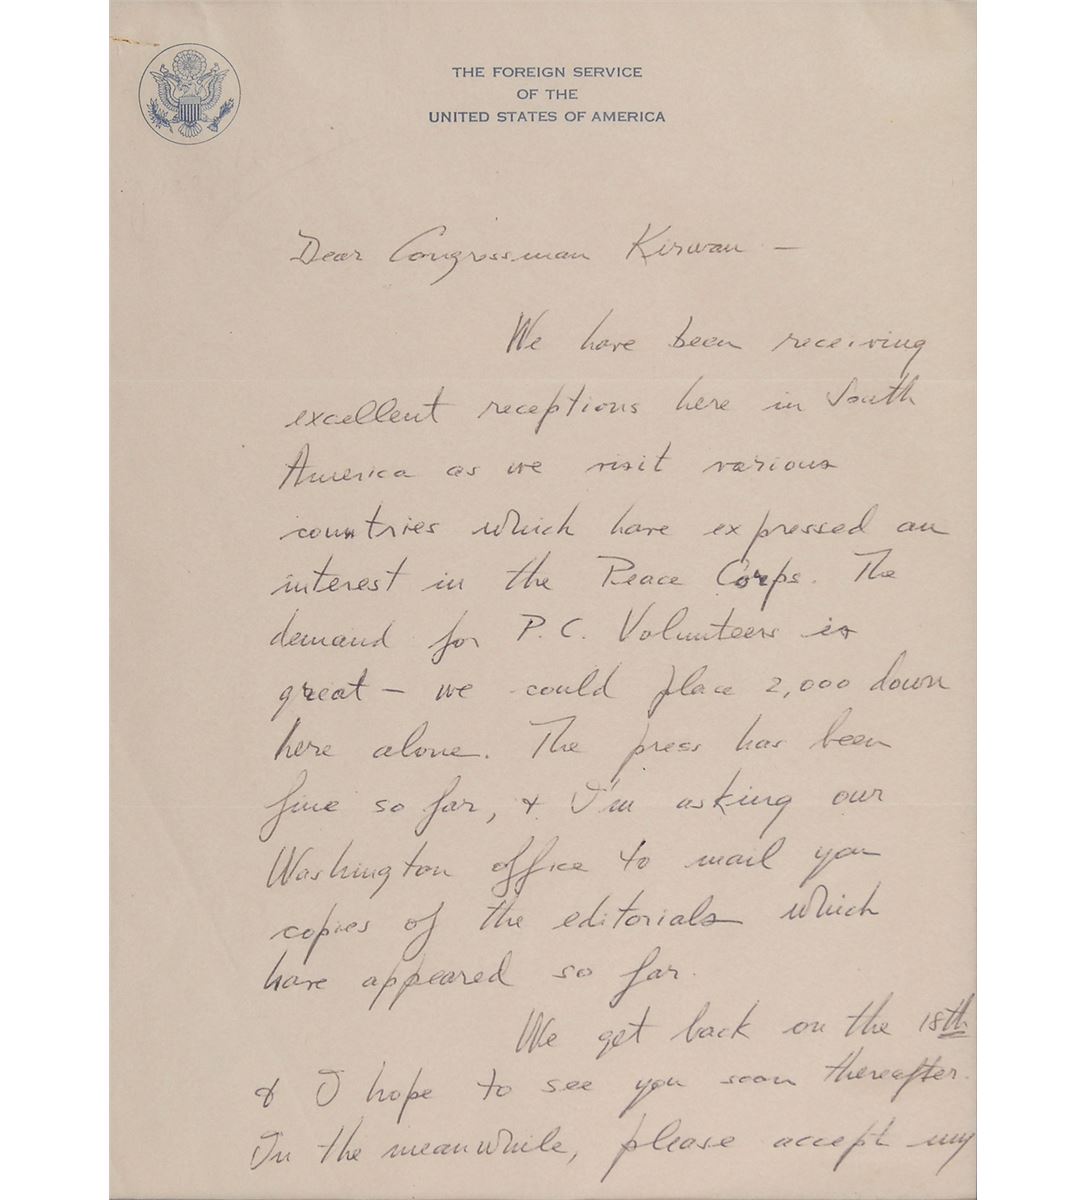 THE FOREIGN SERVICE
OF THE
UNITED STATES OF AMERICA
Dear Congressman Kirwan —
We have been receiving
excellent receptions here in South
America as we visit various
countries which have expressed an
interest in the Peace Corps. The
demand for P.C. Volunteers is
great — we could place 2,000 down
here alone. The press has been
fine so far, & I'm asking our
Washington office to mail you
copies of the editorials which
have appeared so far.
We get back on the 18th
& I hope to see you soon thereafter.
In the meanwhile, please accept my